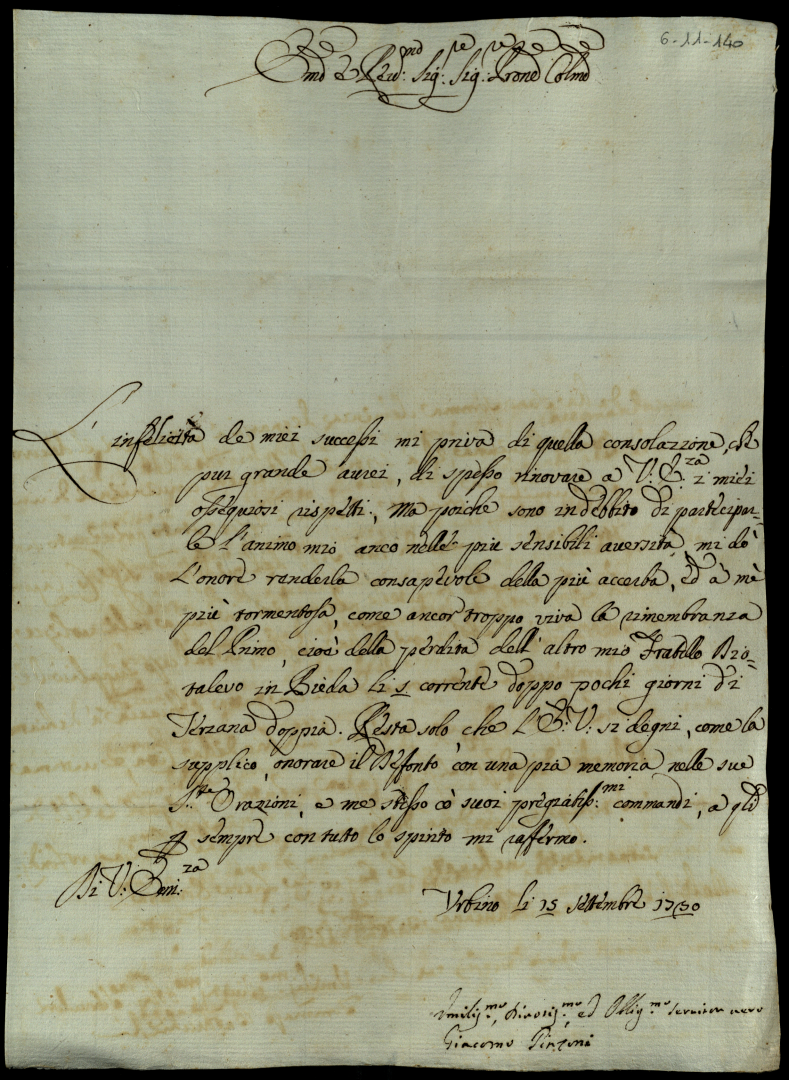 6-11-140
Em̃o e Rev:mo Sig:re Sig:re Prone Colmo
L'infelicità de miei successi mi priva di quella consolazione, che
pur grande aurei, di spesso rinovare a V: E:za i miei
ossequiosi rispetti; Ma poiche sono in debbito di partecipar-
le l'animo mio anco nelle più sensibili aversità, mi dò
l'onore renderla consapevole della più accerba, ed à mè
più tormentosa, come ancor troppo viva la rimembranza
del Primo, cioè della perdita dell'altro mio Fratello
in Bieda li 5 corrente doppo pochi giorni di
Terzana doppia. Resta solo che l'E: V: si degni, come la
supplico onorare il Defonto con una pia memoria nelle sue
S:te Orazioni, e me stesso cò suoi pregiatiss:mi commandi, a qli
p sempre con tutto lo spirito mi raffermo.
Di V: Emi:za
Urbino li 15 settembre 1730
Umilis:mo, Divotis:mo ed Obblig:mo servitor vero
Giacomo